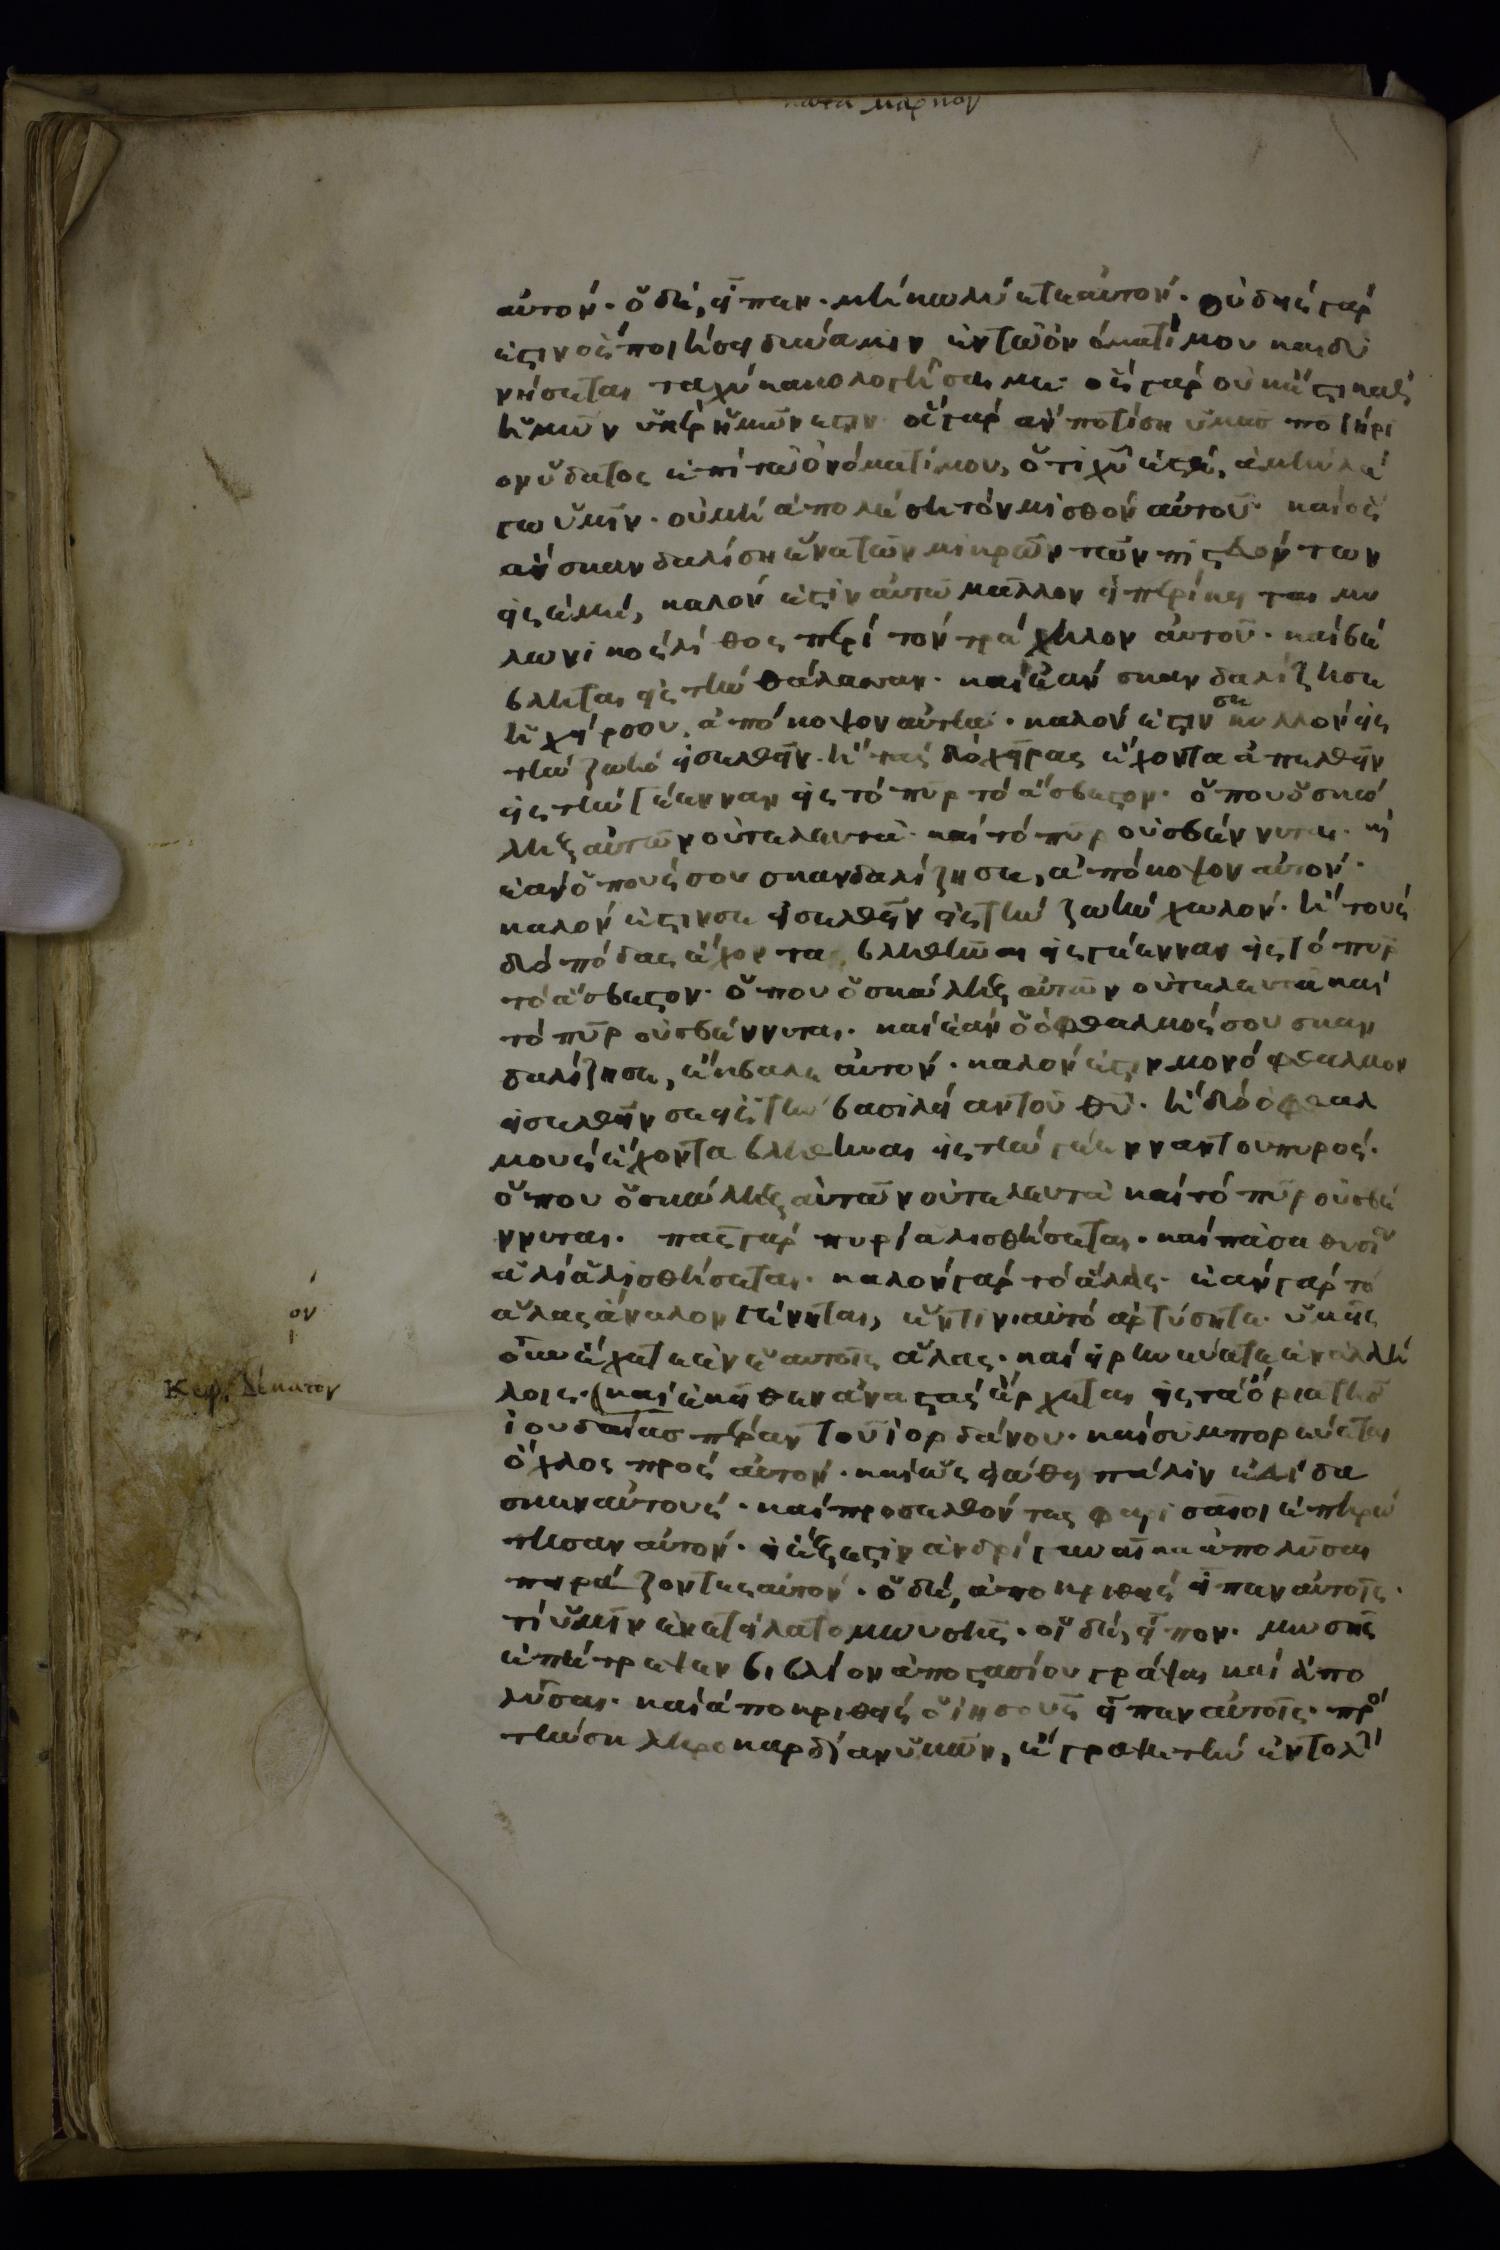 κατὰ μάρκον
αὐτόν· ὁ δὲ, εἶπεν· μὴ κωλύετε αὐτόν· οὐδεὶς γάρ
ἐστιν ὃς ποιήσει δύναμιν ἐν τῶ ὀνόματί μου καὶ δυ
νήσεται ταχὺ κακολογῆσαί με· ὃς γὰρ οὐκ ἔστι καθ'
ἡμῶν ὑπὲρ ἡμῶν ἐστιν· ὃς γὰρ ἂν ποτίση ὑμᾶς ποτήρι
ον ὕδατος ἐπὶ τῶ ὀνόματί μου, ὅτι χυ ἐστέ, ἀμὴν λέ
γω ὑμῖν· οὐ μὴ ἀπολέση τὸν μισθὸν αὐτοῦ· καὶ ὃς
ἂν σκανδαλίση ἕνα τῶν μικρῶν τῶν πιστευόντων
εἰς ἐμέ, καλόν ἐστιν αὐτῶ μᾶλλον εἰ περίκειται μυ
λωνικὸς λίθος περὶ τὸν τράχηλον αὐτοῦ· καὶ βέ
βληται εἰς τὴν θάλασσαν· καὶ ἐὰν σκανδαλίζη σε
ἡ χείρ σου, ἀπόκοψον αὐτήν· καλόν ἐστιν σε κυλλὸν εἰς
τὴν ζωὴν εἰσελθεῖν· ἢ τὰς δύο χεῖρας ἔχοντα ἀπελθεῖν
εἰς τὴν γέενναν εἰς τὸ πῦρ τὸ ἄσβεστον· ὅπου ὁ σκώ
ληξ αὐτῶν οὐ τελευτᾶ· καὶ τὸ πῦρ οὐ σβέννυται· κὶ
ἐὰν ὁ πούς σου σκανδαλίζη σε, ἀπόκοψον αὐτόν·
καλόν ἐστιν σε εἰσελθεῖν εἰς τὴν ζωὴν χωλόν· ἢ τοὺς
δύο πόδας ἔχοντα, βληθῆναι εἰς γέενναν εἰς τὸ πῦρ
τὸ ἄσβεστον· ὅπου ὁ σκώληξ αὐτῶν οὐ τελευτᾶ καὶ
τὸ πῦρ οὐ σβέννυται· καὶ ἐὰν ὁ ὀφθαλμός σου σκαν
δαλίζη σε, ἔκβαλε αὐτόν· καλόν ἐστιν μονόφθαλμον
εἰσελθεῖν σε εἰς τὴν βασιλείαν τοῦ θυ· ἢ δύο ὀφθαλ
μοὺς ἔχοντα βληθῆναι εἰς τὴν γέενναν τοῦ πυρός·
ὅπου ὁ σκώληξ αὐτῶν οὐ τελευτᾶ καὶ τὸ πῦρ οὐ σβέ
ννυται· πᾶς γὰρ πυρὶ ἁλισθήσεται· καὶ πᾶσα θυσία
ἁλὶ ἁλισθήσεται· καλὸν γὰρ τὸ ἅλας· ἐὰν γὰρ τὸ
ἅλας ἄναλον γένηται, ἐν τίνι αὐτὸ ἀρτύσητε· ὑμεῖς
οὖν ἔχετε ἐν ἑαυτοῖς ἅλας· καὶ εἰρηνεύετε ἐν ἀλλή
λοις· καὶ ἐκεῖθεν ἀναστὰς ἔρχεται εἰς τὰ ὅρια τῆς
ἰουδαίας πέραν τοῦ ἰορδάνου· καὶ συμπορεύεται
ὄχλος πρὸς αὐτόν· καὶ ὡς εἰώθει πάλιν ἐδίδα
σκεν αὐτούς· καὶ προσελθόντες φαρισαῖοι ἐπηρώ
τησαν αὐτόν· εἰ ἔξεστιν ἀνδρὶ γυναῖκα ἀπολῦσαι
πειράζοντες αὐτόν· ὁ δὲ, ἀποκριθεὶς εἶπεν αὐτοῖς·
τί ὑμῖν ἐνετείλατο μωυσῆς· οἱ δὲ, εἶπον· μωσῆς
ἐπέτρεψεν βιβλίον ἀποστασίου γράψαι καὶ ἀπο
λῦσαι· καὶ ἀποκριθεὶς ὁ ἰησοῦς εἶπεν αὐτοῖς· πρὸ
τὴν σκληροκαρδίαν ὑμῶν, ἔγραψε τὴν ἐντολὴ
ον
ι
Κεφ. δέκατον